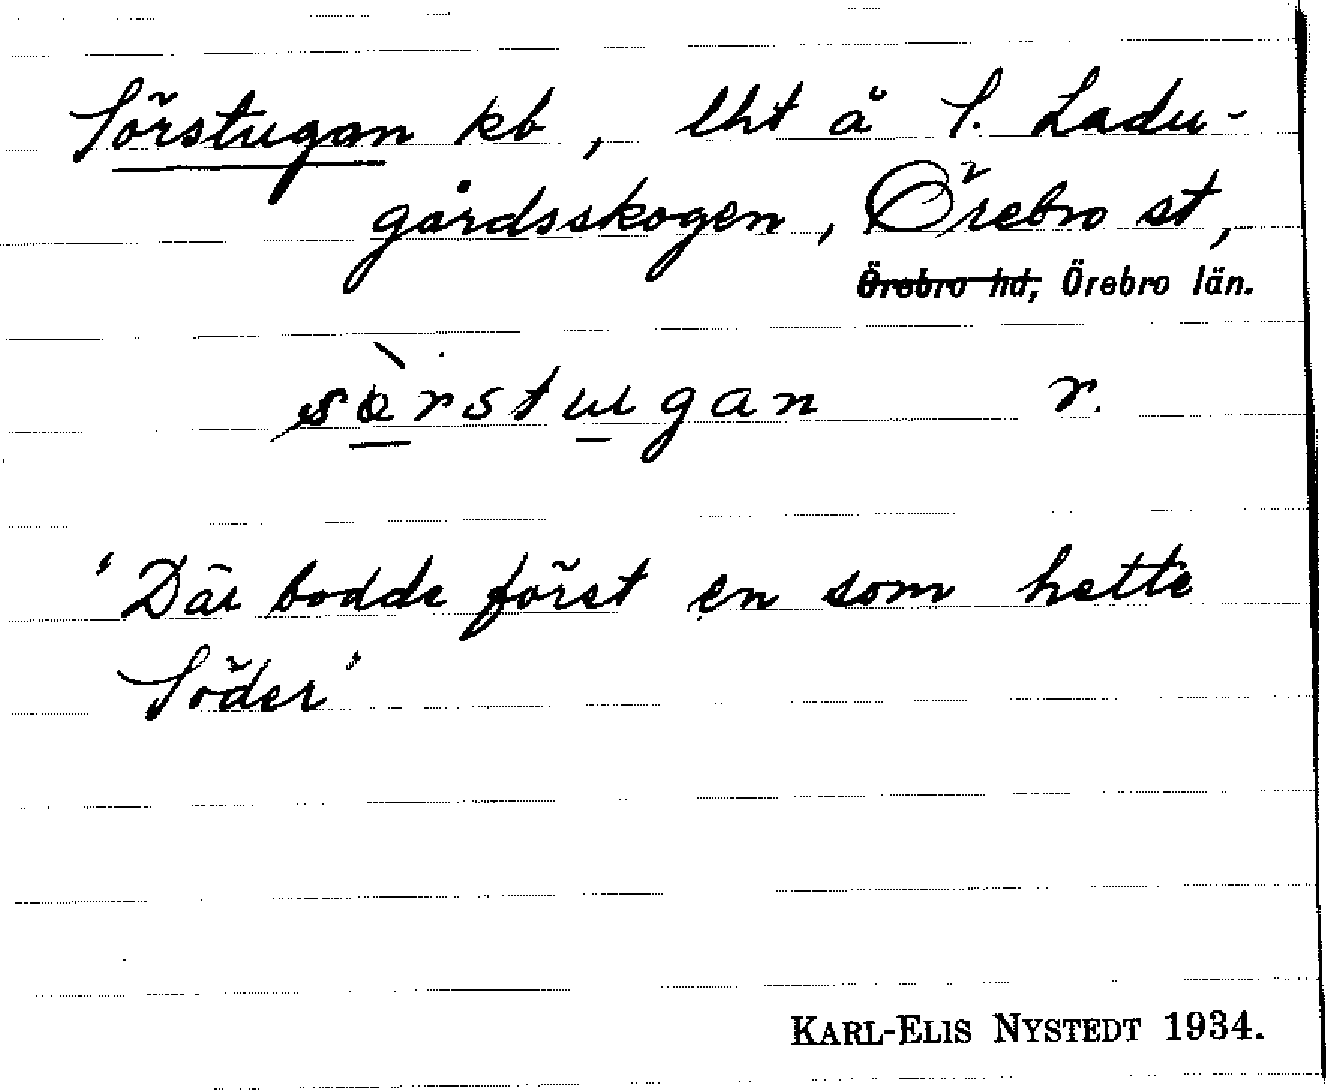 Sörstugan kb, lht å S. Ladu-
gårdsskogen, Örebro st,
Örebro hd, Örebro län.
sörstugan r.
"Där bodde först en som hette
Söder"
KARL-ELIS NYSTEDT 1934.